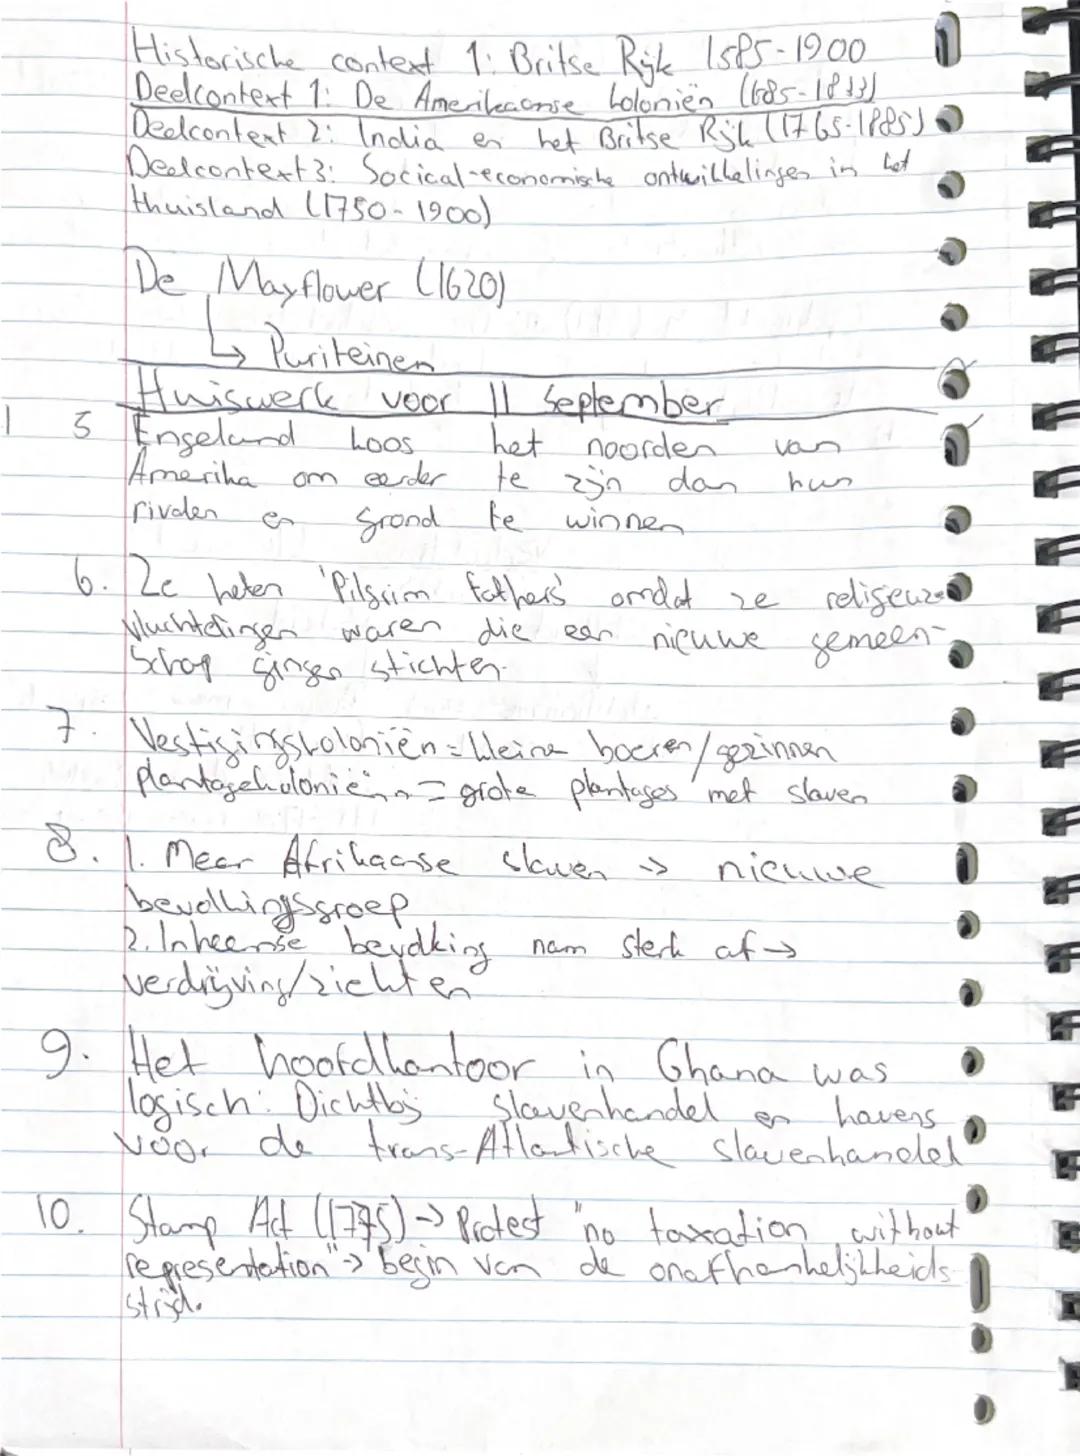 Historische context 1: Britse Rijk 1585-1900
Deelcontext 1: De Amerikaanse koloniën (1685-1833)
Deelcontext 2: India en het Britse Rijk (1765-1885)
Deelcontext 3: Socical-economische ontwikkelingen in het
thuisland (1750-1900)
De Mayflower (1620)
↳ Puriteinen
Huiswerk voor 11 September
1 5 Engeland koos het noorden van
Amerika om eerder te zijn dan hun
rivalen en grond te winnen
6. Ze heten 'Pilgrim fathers' omdat ze religeuze
vluchtelingen waren die een nieuwe gemeen-
schap gingen stichten.
7. Vestigingskoloniën = kleine boeren/gezinnen
plantagekoloniën = grote plantages met slaven
8. 1. Meer Afrikaanse slaven -> nieuwe
bevolkingsgroep
2. Inheemse bevolking nam sterk af ->
verdrijving/ziekten
9. Het hoofdkantoor in Ghana was
logisch: Dichtbij slavenhandel en havens
voor de trans-Atlantische slavenhandel
10. Stamp Act (1775) -> Protest "no taxation without
representation" -> begin van de onafhankelijkheids
strijd.